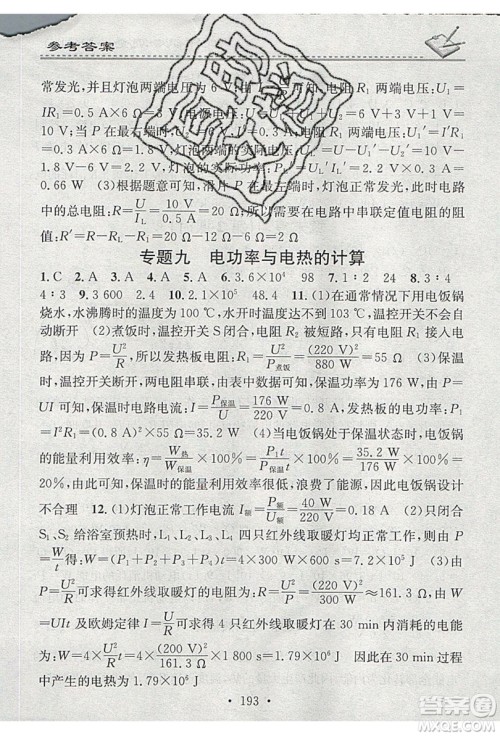 参考答案
常发光，并且灯泡两端电压为 6 V，由 可知，电阻 R₁ 两端电压：U₁＝
IR₁＝0.5 A×6 Ω＝3 V，灯泡两端
10 V；当 P 在最右端时，
1.8 V－6 V＝2.2 V，灯泡的实际功率：P_L′＝U_L′I′＝2.2 V×0.3 A＝
0.66 W　(3)根据题意可知，滑片 P 在最 灯泡正常发光，此时电路
中的总电阻：R＝U/I＝10 V/0.5 A＝20 Ω；所以需要在电路中串联定值电阻的阻
值：R′＝R－R_L－R₁＝20 Ω－12 Ω－6 Ω＝2 Ω
专题九　电功率与电热的计算
1.C　2.A　3.A　5.A　6.3.6×10⁴　98　7.1∶2　24　8.3∶4
4∶3　9.3 600　10.A　11.(1)在通常情况下用电饭锅
烧水，水沸腾时的温度为 100 ℃，达不到 103 ℃，温控开关不会自
动断开　(2)煮饭时，温控开关 S 闭合，电阻 R₂ 被短路，只有 R₁ 接入电
路，因为 P＝U²/R，所以发热板电阻 R₁＝U²/P煮饭＝(220 V)²/880 W＝55 Ω　(3)保温
时，温控开关断开，两电阻串联，由表中数据可知，保温功率为 176 W，由 P＝
UI 可知，保温时电路电流：I＝P保温/U＝176 W/220 V＝0.8 A，发热板的功率：P₁＝
I²R₁＝(0.8 A)²×55 Ω＝35.2 W，所以电饭锅处于保温状态时，电饭锅
的能量利用效率：η＝W热/W保温×100%＝P₁t/P保温t×100%＝35.2 W/176 W×100%＝
20%，保温时的能量利用效率很低，浪费了能量，因此，电饭锅保温设计
不合理　12.(1)灯泡正常工作电流 I额＝P额/U额＝40 W/220 V≈0.18 A　(2)闭合
S₁、S₂、S₃ 给浴室预热时，灯泡、电动机、四只红外线取暖灯均正常工作，由
P＝W/t 可求得：W＝(P＋P₁＋P₂＋P₃＋P₄)t＝1 200 W×600 s＝7.2×10⁵ J　(3)由
P＝U²/R 可求得红外线取暖灯的电阻为：R＝U²/P＝(220 V)²/300 W≈161.3 Ω　由
W＝UIt 及欧姆定律 I＝U/R 可求得红外线取暖灯在 30 min 内消耗的电能
为：W＝U²/R t＝(220 V)²/161.3 Ω×30×60 s＝1.79×10⁶ J　因此在 30 min 过程
中产生的电热为 1.79×10⁶ J
·193·
答案圈
MXQE.COM